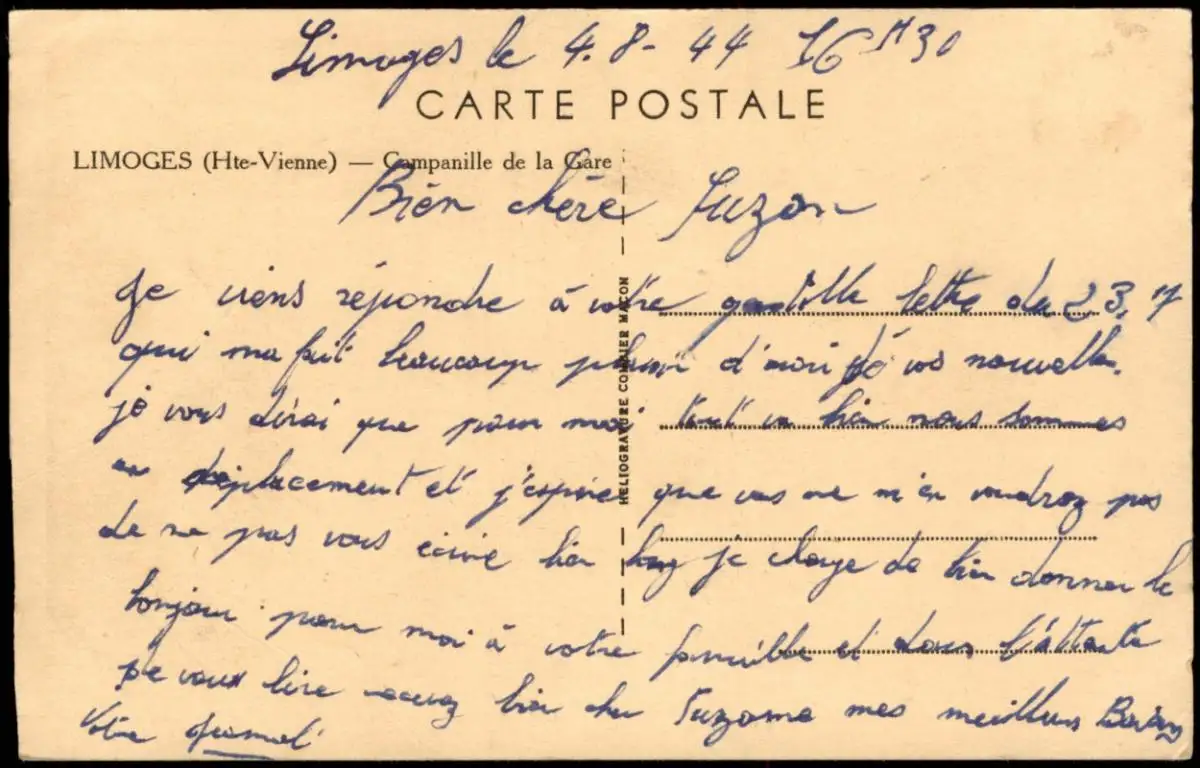 Limoges le 4.8-44 16H30
CARTE POSTALE
LIMOGES (Hte-Vienne) — Campanille de la Gare
Bien chère Suzon
HELIOGRAVURE COMBIER MACON
Je viens répondre à votre gentille lettre du 23.7
qui ma fait beaucoup plaisir d'avoir dé vos nouvelles.
je vous dirai que pour moi tout va bien nous sommes
en déplacement et j'éspère que vous ne m'en voudrez pas
de ne pas vous écrire bien long je charge de bien donner le
bonjour pour moi à votre famille et dans l'attente
De vous lire recevez bien cher Suzanne mes meilleurs Baisers
Votre